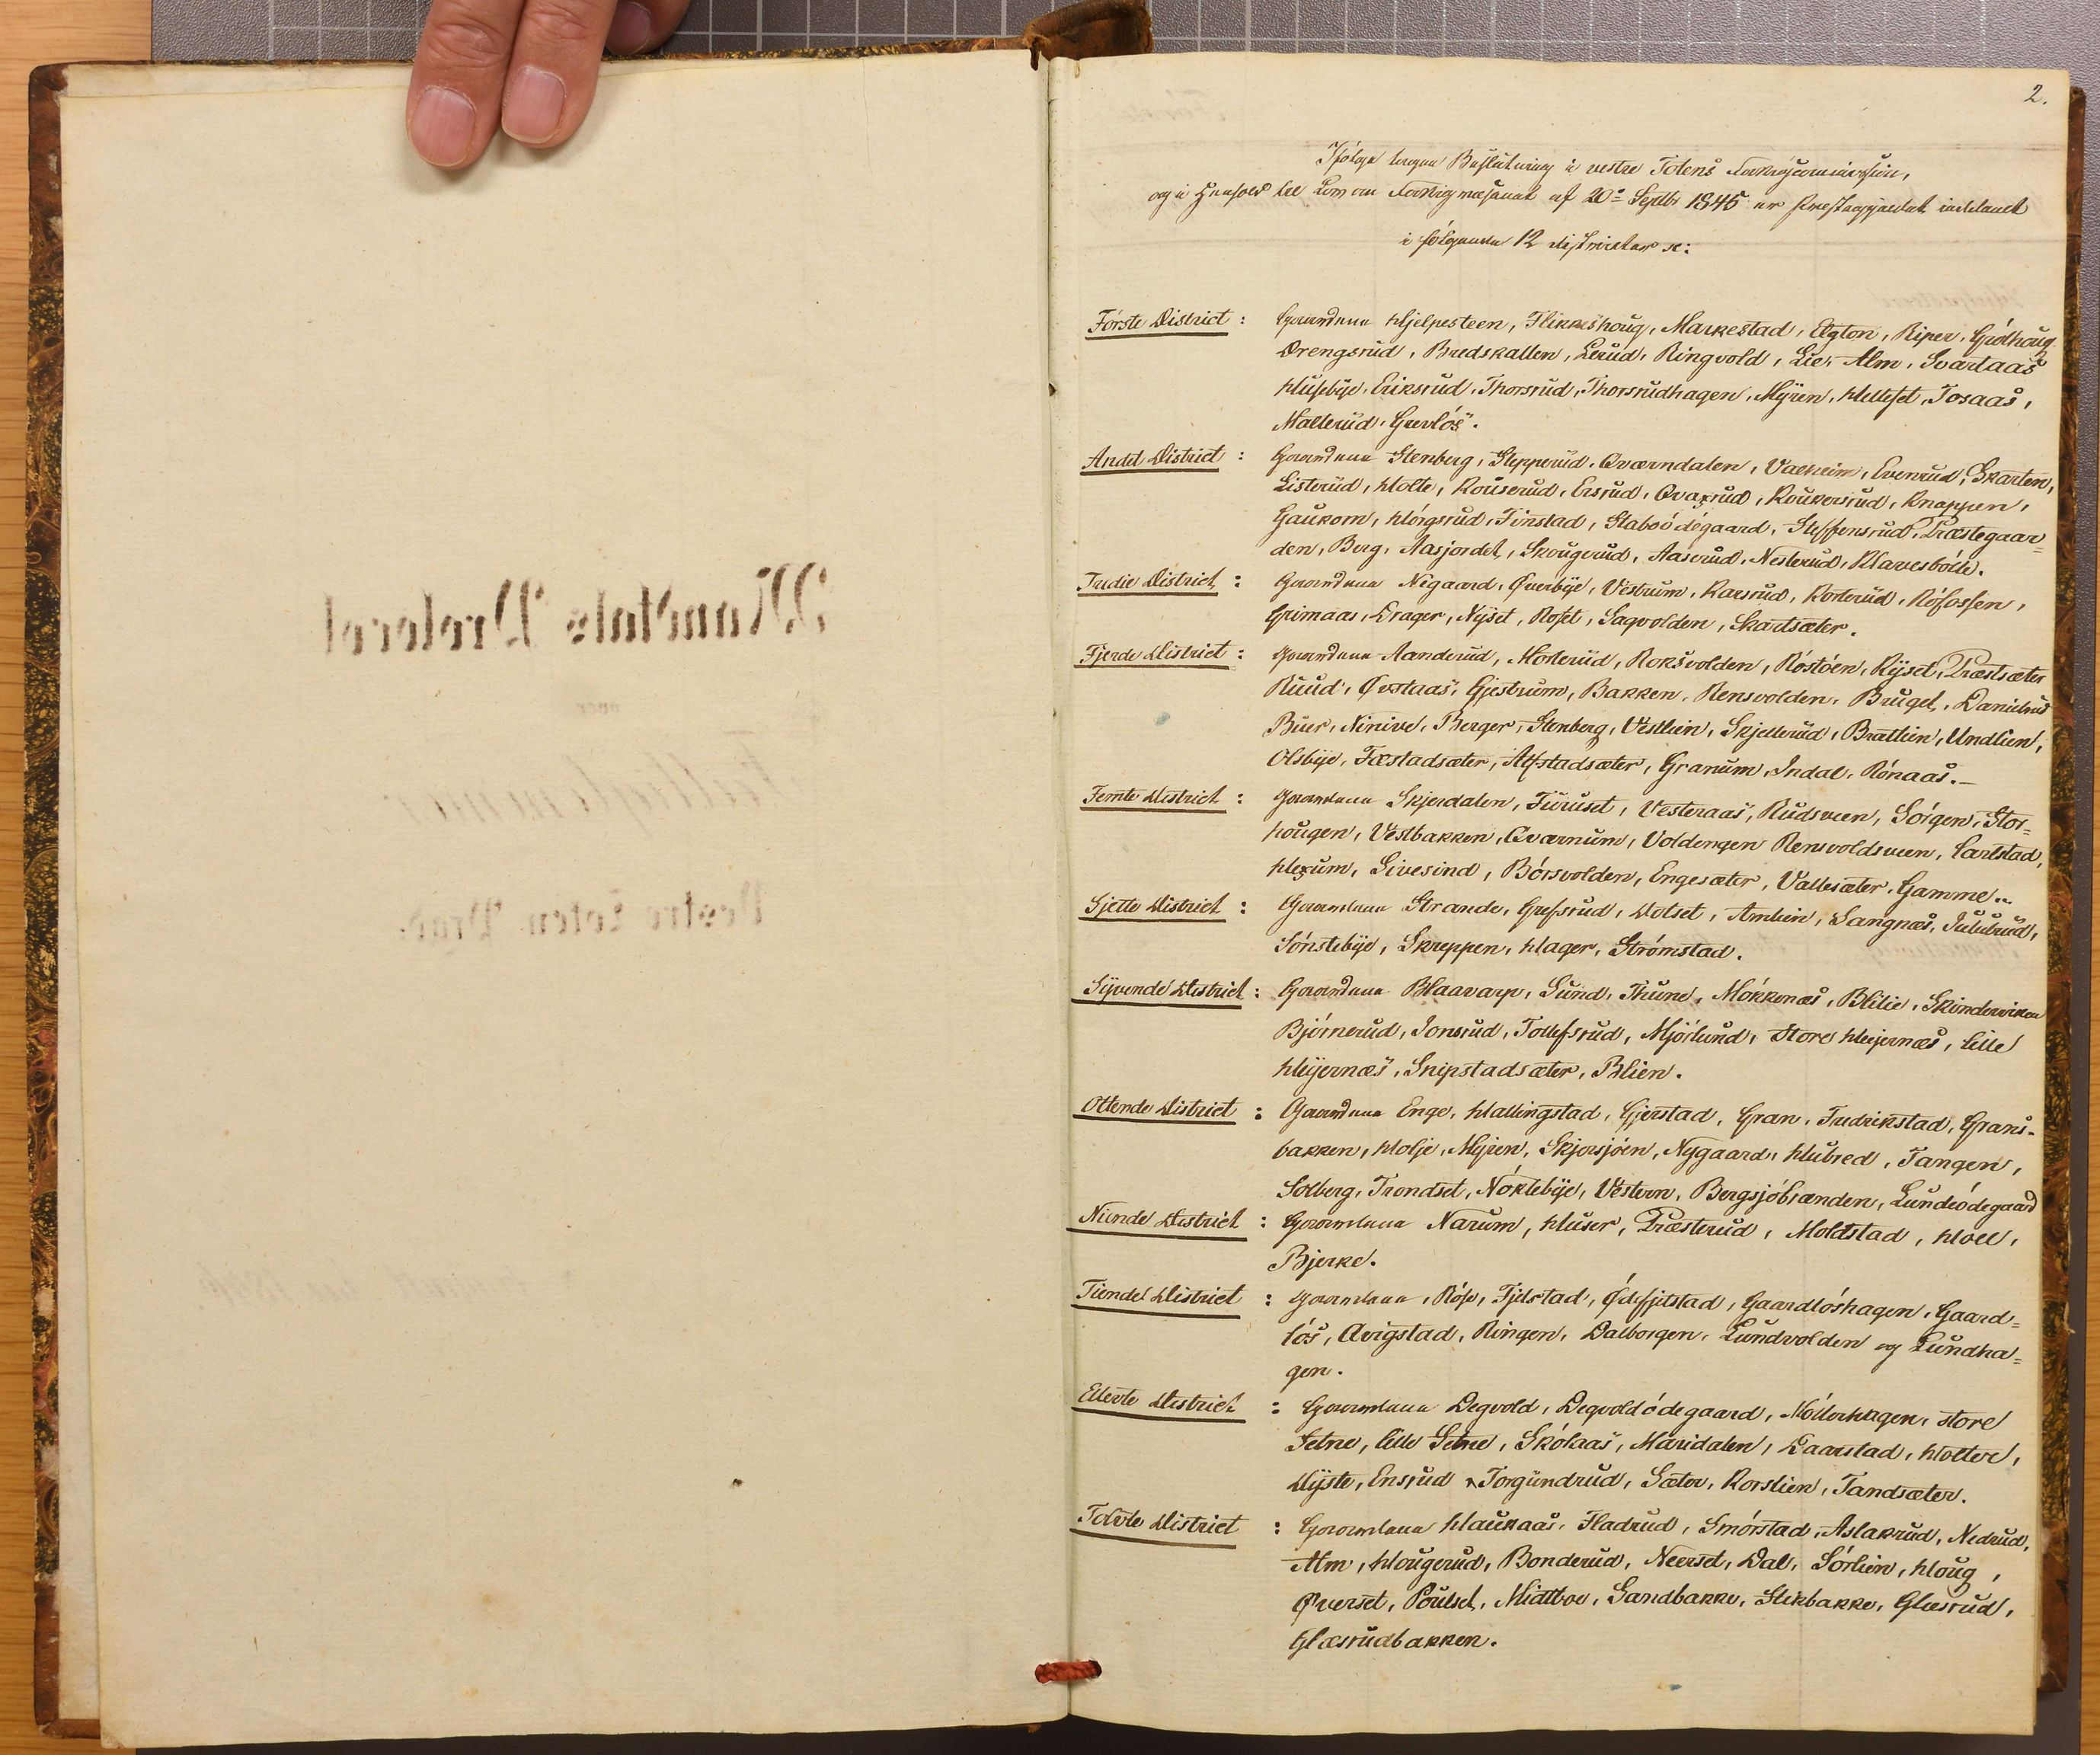 Mandtals Protocol
over
Fattiglemmer
Vestre Toten Præst
2.
Ifølge tagen Beslutning i vestre Totens Fattigcommission,
og i Henhold til Lov om Fattigvæsenet af 20de Septbr 1845 er Præstegjældet inddeelt
i følgende 12 distrikter se:
Første District : Gaardene Hjelpesteen, Flikkeshoug, Markestad, Elgton, Riper, Gjølhoug
Drengsrud, Bredskallen, Lerud, Ringvold, Lie, Alm, Svartaas
Husebye, Eriksrud, Thorsrud, Thorsrudhagen, Myren, Helleset, Josaas,
Mallerud, Grevløs.
Andet District : Gaardene Stenberg, Stepperud, Qværndalen, Valheim, Evenrud, Skarten,
Listerud, Holte, Rouserud, Ersrud, Qvaxrud, Roukersrud, Knappen,
Gaukom, Hørgsrud, Finstad, Staboødegaard, Steffensrud, Præstegaar=
den, Berg, Aasjordet, Skougerud, Aaserud, Nesterud, Klavesbøle.
Tredie District : Gaardene Nigaard, Øverbye, Vestrum, Karsrud, Kosterud, Røfossen,
Grimaas, Drager, Nyset, Roset, Sagvolden, Skartsæter.
Fjerde District : Gaardene Aanderud, Mosterud, Roksvolden, Røstøen, Ryset, Præstsæter
Ruud, Øvstaas, Gjestrum, Bakken, Rensvolden, Bruget, Danielrud
Buer, Ninive, Berger, Stenberg, Vestlien, Skjellerud, Brattlien, Undlien,
Olsbye, Fæstadsæter, Alfstadsæter, Granum, Indal, Rønaas.–
Femte District : Gaardene Skjerdalen, Furuset, Vesteraas, Rudsveen, Sørgen, Stor=
hougen, Vestbakken, Qværnum, Voldengen Rensvoldsveen, Carlstad,
Hexum, Sivesind, Børsvolden, Engesæter, Vallesæter, Gamme..
Sjette District : Gaardene Strande, Grefsrud, Dotset, Amlien, Langnæs, Julubrud,
Sønstebye, Skreppen, Hager, Strømstad.
Syvende District : Gaardene Blaavarp, Sund, Thune, Møkkenæs, Blilie, Skinderviken
Bjørnerud, Jonsrud, Tollefsrud, Mjørlund, Store Heijernæs, lille
Heijernæs, Snipstadsæter, Blien.
Ottende District : Gaardene Enge, Hallingstad, Gjerstad, Gran, Fredrikstad, Grans-
bakken, Holje, Myren, Skjersjøen, Nygaard, Hubred, Tangen,
Solberg, Trondset, Nøklebye, Vestern, Bergsjøbrænden, Lundeødegaard
Niende District : Gaardene Narum, Huser, Præsterud, Moldstad, Hoel,
Bjerke.
Tiende District : Gaardene, Røse, Fjelstad, Ødefjelstad, Gaardløshagen, Gaard=
løs, Avigstad, Ringen, Dalborgen, Lundvolden og Lundha=
gen.
Ellevte District : Gaardene Degvold, Degvoldødegaard, Møllerhagen, store
Setne, lille Setne, Skølaas, Maridalen, Laarstad, Holter,
Dyste, Ensrud, Torgundrud, Sæter, Korslien, Tandsæter.
Tolvte District : Gaardene Haukaas, Fladrud, Smørstad, Aslakrud, Nedrud,
Alm, Hougerud, Bonderud, Neerset, Dal, Sørlien, Houg,
Øverset, Poulsel, Midtboe, Sandbakke, Stikbakke, Glæsrud,
Glæsrudbakken.